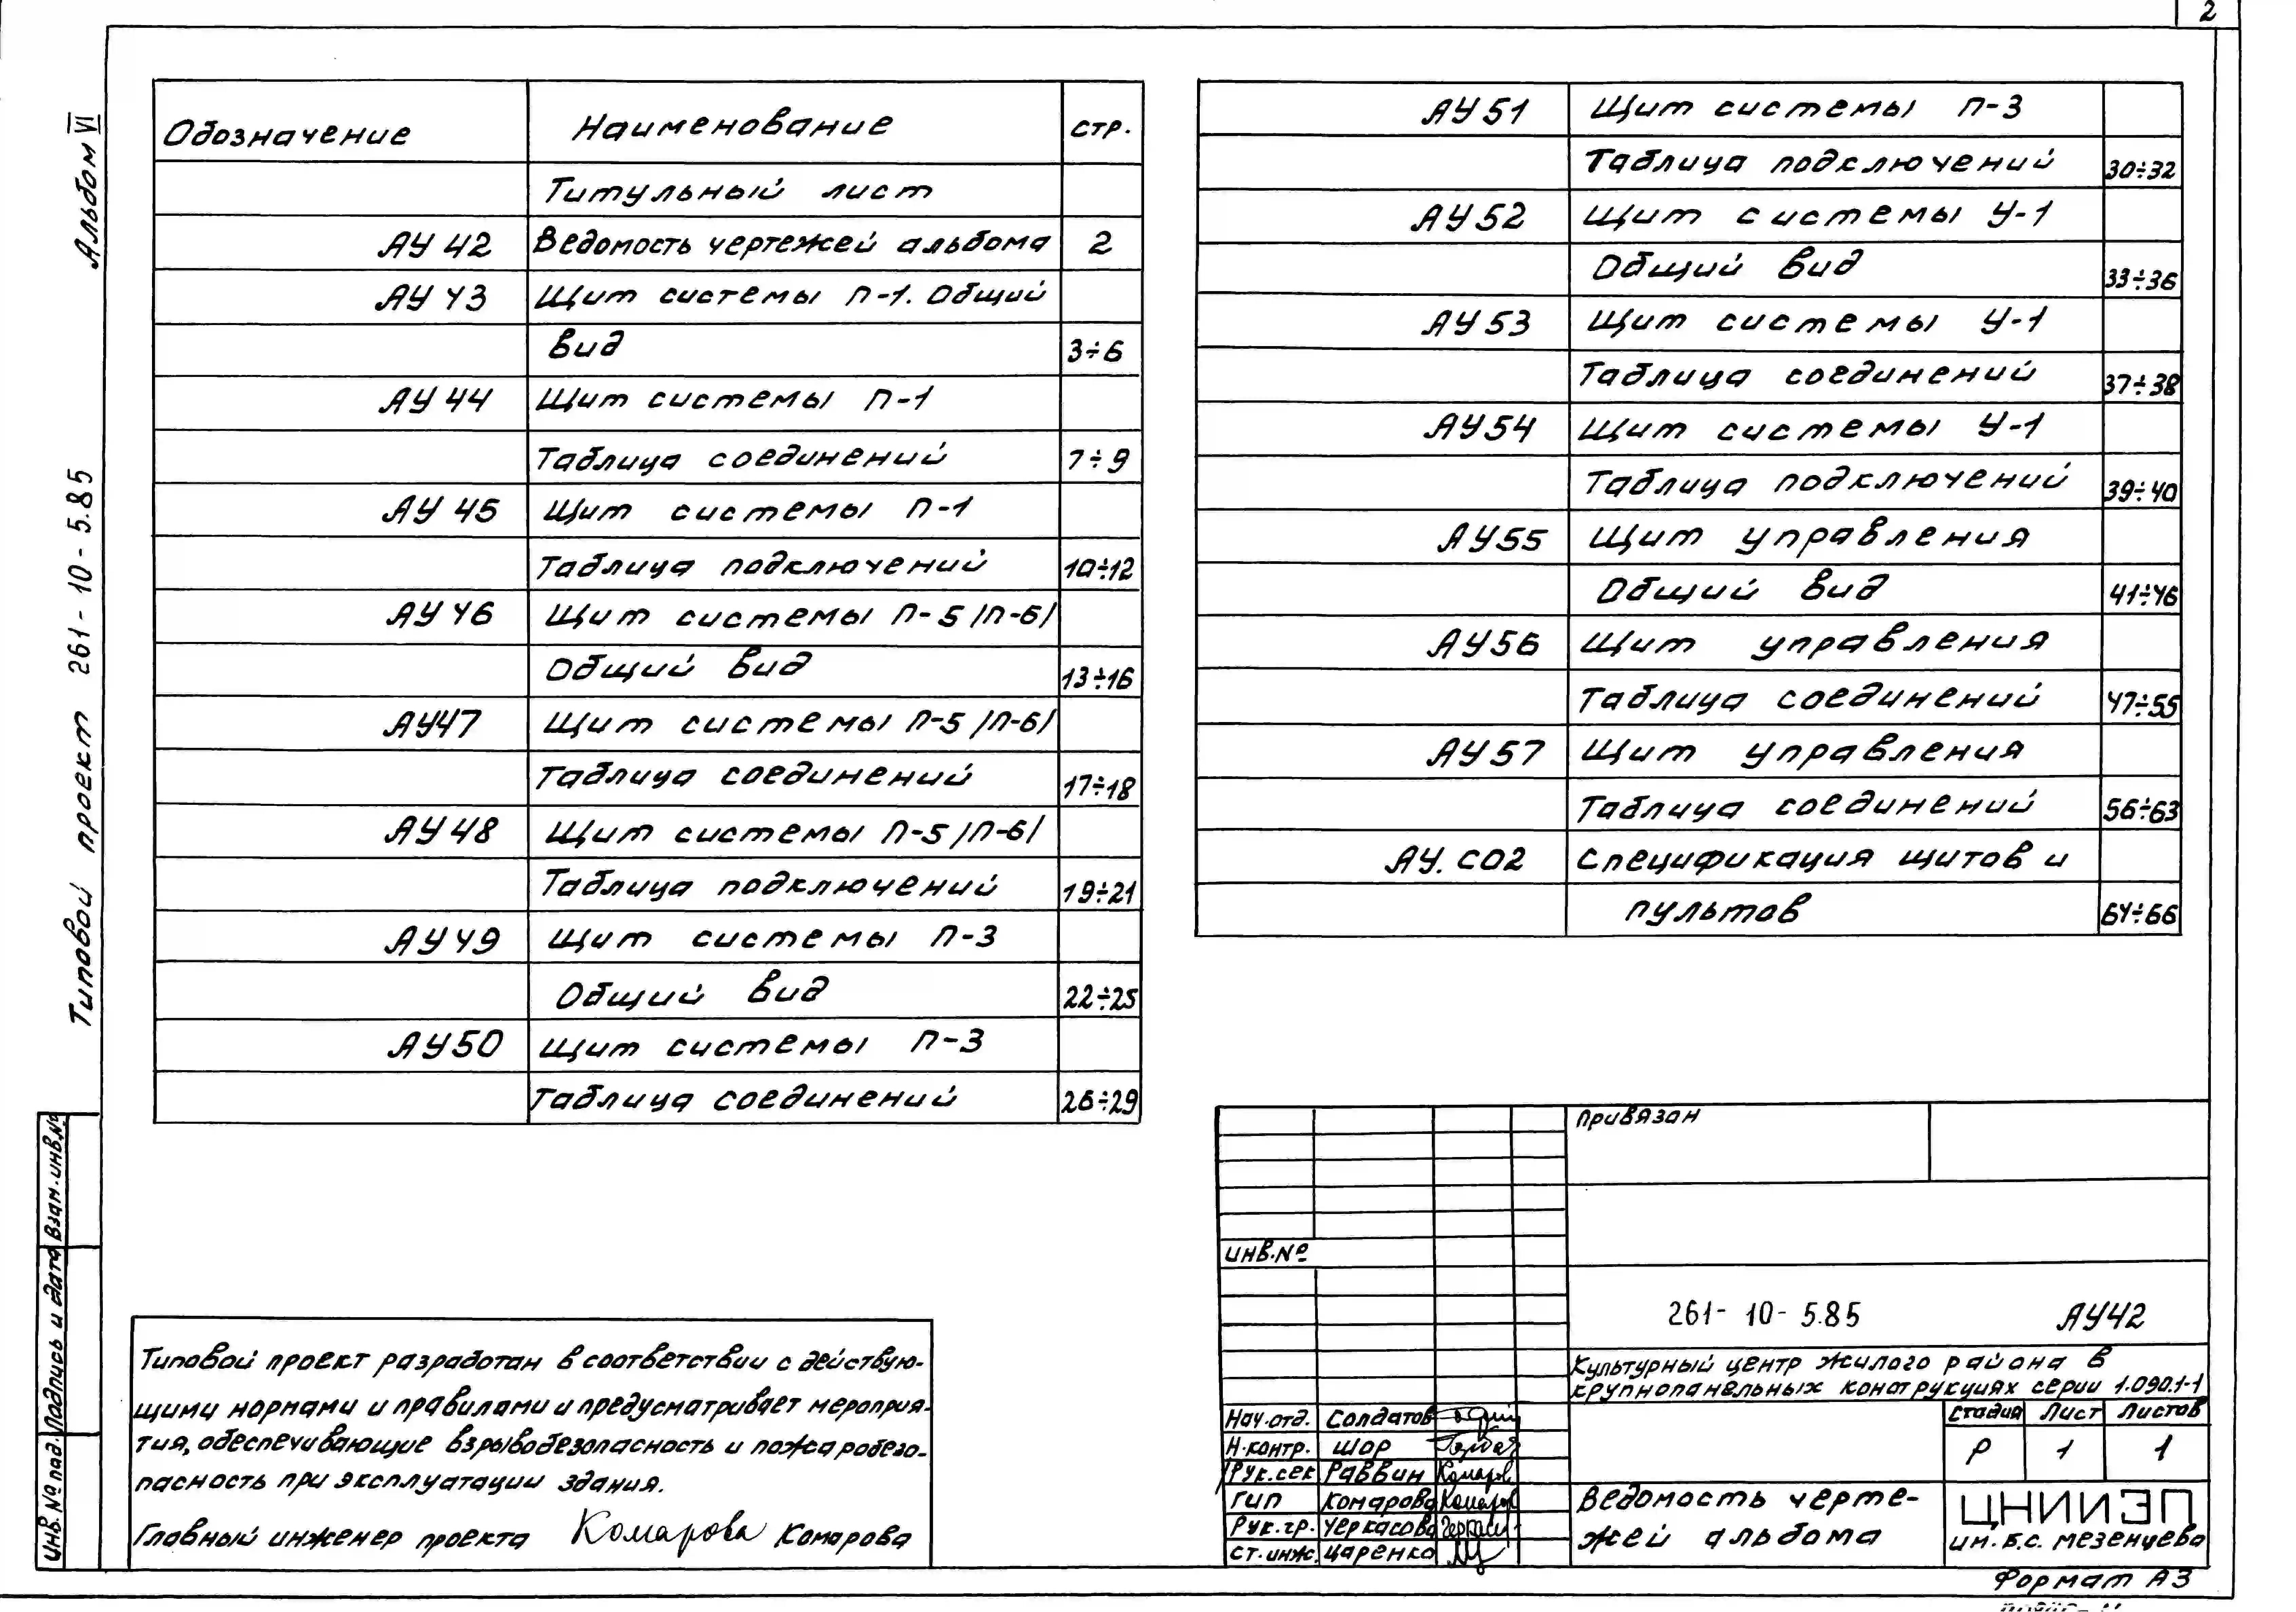 2
Альбом VI
Типовой проект 261-10-5.85
Обозначение Наименование стр.
Титульный лист
АУ 42 Ведомость чертежей альбома 2
АУ 43 Щит системы П-1. Общий
вид 3÷6
АУ 44 Щит системы П-1
Таблица соединений 7÷9
АУ 45 Щит системы П-1
Таблица подключений 10÷12
АУ 46 Щит системы П-5 /П-6/
Общий вид 13÷16
АУ47 Щит системы П-5 /П-6/
Таблица соединений 17÷18
АУ 48 Щит системы П-5 /П-6/
Таблица подключений 19÷21
АУ 49 Щит системы П-3
Общий вид 22÷25
АУ50 Щит системы П-3
Таблица соединений 26÷29
АУ51 Щит системы П-3
Таблица подключений 30÷32
АУ52 Щит системы У-1
Общий вид 33÷36
АУ53 Щит системы У-1
Таблица соединений 37÷38
АУ54 Щит системы У-1
Таблица подключений 39÷40
АУ55 Щит управления
Общий вид 41÷46
АУ56 Щит управления
Таблица соединений 47÷55
АУ57 Щит управления
Таблица соединений 56÷63
АУ. СО2 Спецификация щитов и
пультов 64÷66
Типовой проект разработан в соответствии с действую-
щими нормами и правилами и предусматривает мероприя-
тия, обеспечивающие взрывобезопасность и пожаробезо-
пасность при эксплуатации здания.
Главный инженер проекта Комарова Комарова
Инв. № под. Подпись и дата Взам. инв. №
Привязан
Инв. №
261-10-5.85 АУ42
Культурный центр жилого района в
крупнопанельных конструкциях серии 1.090.1-1
Нач. отд. Солдатов
Н. контр. Шор
Рук. сек Раввин
Гип Комарова
Рук. гр. Черкасова
Ст. инж. Царенко
Стадия Лист Листов
Р 1 1
Ведомость черте-
жей альбома
ЦНИИЭП
им. Б.С. Мезенцева
Формат А3